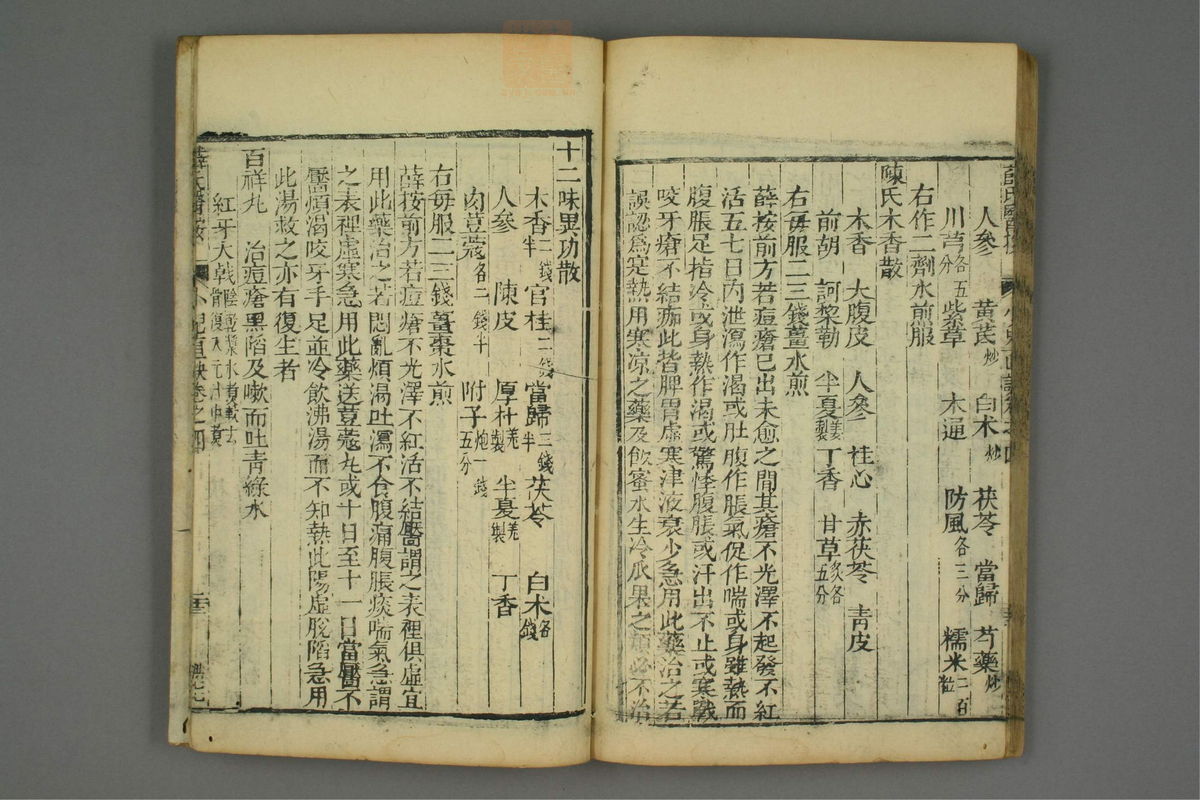 人參 黃芪炒 白朮炒 茯苓 當歸 芍藥炒
川芎各五分 紫草 木通 防風各三分 糯米二百粒
右作二劑水煎服
陳氏木香散
木香 大腹皮 人參 桂心 赤茯苓 青皮
前胡 訶棃勒 半夏姜製 丁香 甘草炙各五分
右每服二三錢薑水煎
薛按前方若痘瘡已出未愈之間其瘡不光澤不起發不紅
活五七日內泄瀉作渴或肚腹作脹氣促作喘或身雖熱而
腹脹足指冷或身熱作渴或驚悸腹脹或汗出不止或寒戰
咬牙瘡不結痂此皆脾胃虛寒津液衰少急用此藥治之若
誤認爲實熱用寒凉之藥及飲蜜水生冷瓜果之類必不治
十二味異功散
木香二錢半 官桂二錢 當歸三錢半 茯苓 白朮各錢
人參 陳皮 厚朴姜製 半夏姜製 丁香
肉荳蔻各二錢半 附子炮一錢五分
右每服二三錢薑棗水煎
薛按前方若痘瘡不光澤不紅活不結靨謂之表裡俱虛宜
用此藥治之若悶亂煩渴吐瀉不食腹痛腹脹痰喘氣急謂
之表裡虛寒急用此藥送荳蔻丸或十日至十一日當靨不
靨煩渴咬牙手足並冷飲沸湯而不知熱此陽虛脫陷急用
此湯救之亦有復生者
百祥丸 治痘瘡黑陷及嗽而吐青綠水
紅牙大戟陰乾漿水煮軟去骨復入元汁中煮
薛氏醫按 小兒直訣卷之四